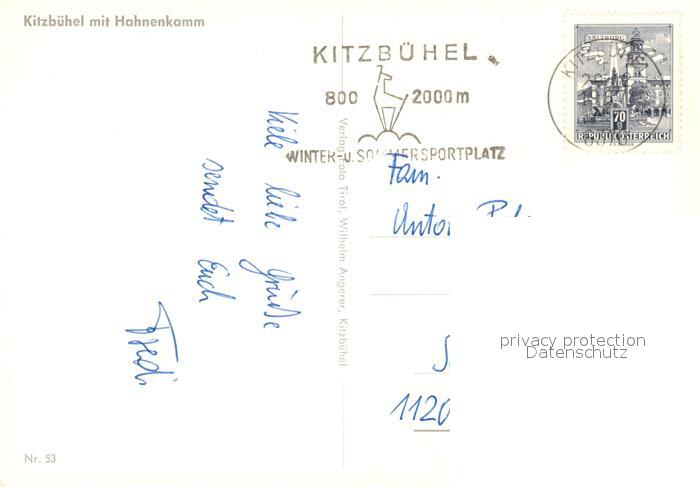 Kitzbühel mit Hahnenkamm
KITZBÜHEL
800 2000 m
WINTER- u. SOMMERSPORTPLATZ
SALZBURG
70 g
REPUBLIK ÖSTERREICH
Viele liebe Grüße
sendet Euch
Fredi
Verlag Foto Tirol, Wilhelm Angerer, Kitzbühel
Fam.
1120
privacy protection
Datenschutz
Nr. 53